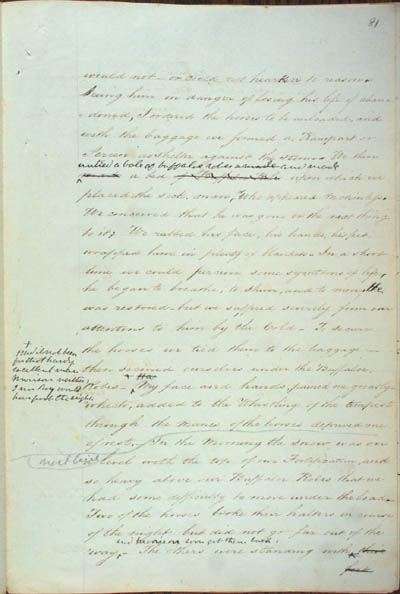 81
would not – or could not hearken to reason.
Seeing him in danger of losing his life if aban-
-doned, I ordered the horses to be unloaded, and
with the baggage we formed a Rampart or
Screen as shelter against the storm. We then
untied a bale of buffaloe robes &
a bed of Buffaloe upon which we
placed the sick man, who appeared
We conceived that he was gone or the next thing
to it; We rubbed his face, his hands, his feet
wrapped him in plenty of blankets. In a short
time we could perceive some symptoms of life,
he began to breathe, to stir, and to moan. He
was restored but we suffered severely from our
attentions to him by the cold – To secure
the horses we tied them to the baggage –
then secured ourselves under the Buffaloe
Robes – My face and hands pained me greatly
which, added to the Whistling of the tempest
through the manes of the horses deprived me
of rest. In the Morning the snow was on
next line
a level with the top of our Fortification, and
so heavy above our Buffaloe Robes that we
had some difficulty to move under the load.
Two of the horses broke their halters in course
of the night but did not go far out of the
and we soon got them back.
way, – The others were standing with their